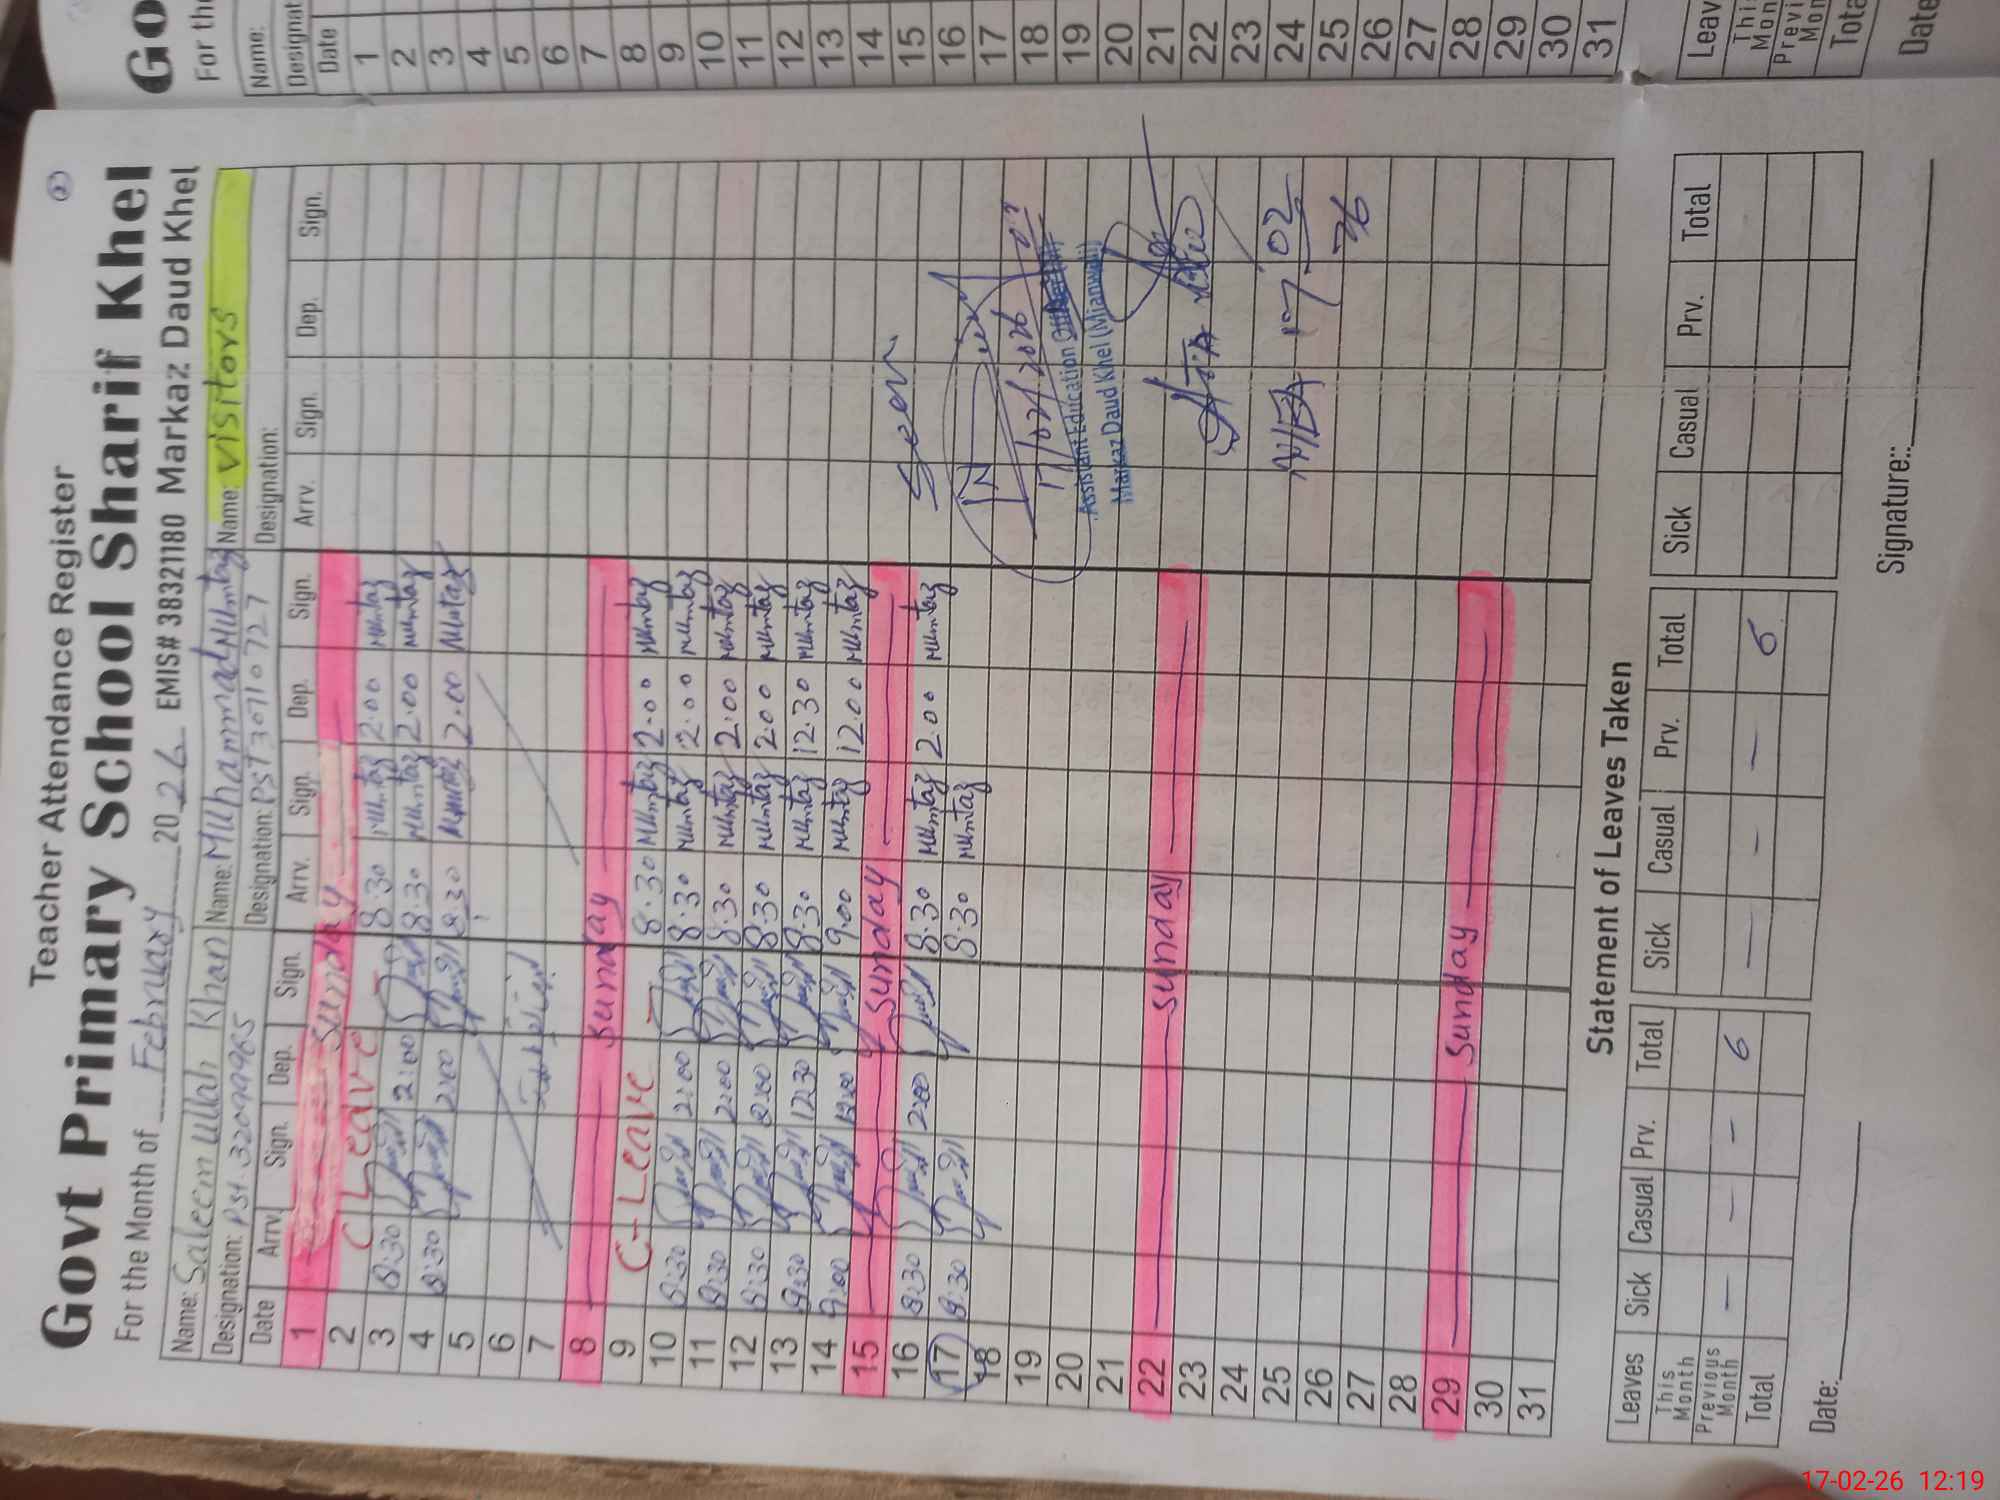 Teacher Attendance Register
Govt Primary School Sharif Khel
For the Month of February 2026 EMIS# 38321180 Markaz Daud Khel
Name: Saleem Ullah Khan Name: Muhammad Mumtaz Name: Visitors
Designation: PST. 32099965 Designation: PST 30710727 Designation:
Date Arrv. Sign. Dep. Sign. Arrv. Sign. Dep. Sign. Arrv. Sign. Dep. Sign.
1 Sunday
2 C Leave 8.30 Mumtaz 2.00 Mumtaz
3 8:30 2:00 8.30 Mumtaz 2.00 Mumtaz
4 8:30 2:00 8.30 Mumtaz 2.00 Mumtaz
5
6
7
8 Sunday
9 C-Leave 8.30 Mumtaz 2.00 Mumtaz
10 8:30 2:00 8.30 Mumtaz 2.00 Mumtaz
11 8:30 2:00 8.30 Mumtaz 2.00 Mumtaz
12 8:30 2:00 8.30 Mumtaz 2.00 Mumtaz
13 8:30 12:30 8.30 Mumtaz 12.30 Mumtaz
14 9:00 12:00 9.00 Mumtaz 12.00 Mumtaz
15 Sunday
16 8:30 2:00 8.30 Mumtaz 2.00 Mumtaz Seen
17 8:30 8.30 Mumtaz
18
19 17/02/2026
20 Assistant Education
21 Markaz Daud Khel (Mianwali)
22 Sunday
23
24
25 17 02
26 26
27
28
29 Sunday
30
31
Statement of Leaves Taken
Leaves Sick Casual Prv. Total Sick Casual Prv. Total Sick Casual Prv. Total
This Month
Previous Month — — — 6 — — — 5
Total
Date: Signature:
Go
For the
Name:
Designat
Date
1
2
3
4
5
6
7
8
9
10
11
12
13
14
15
16
17
18
19
20
21
22
23
24
25
26
27
28
29
30
31
Leav
This Mon
Previ Mon
Tota
Date
17-02-26 12:19